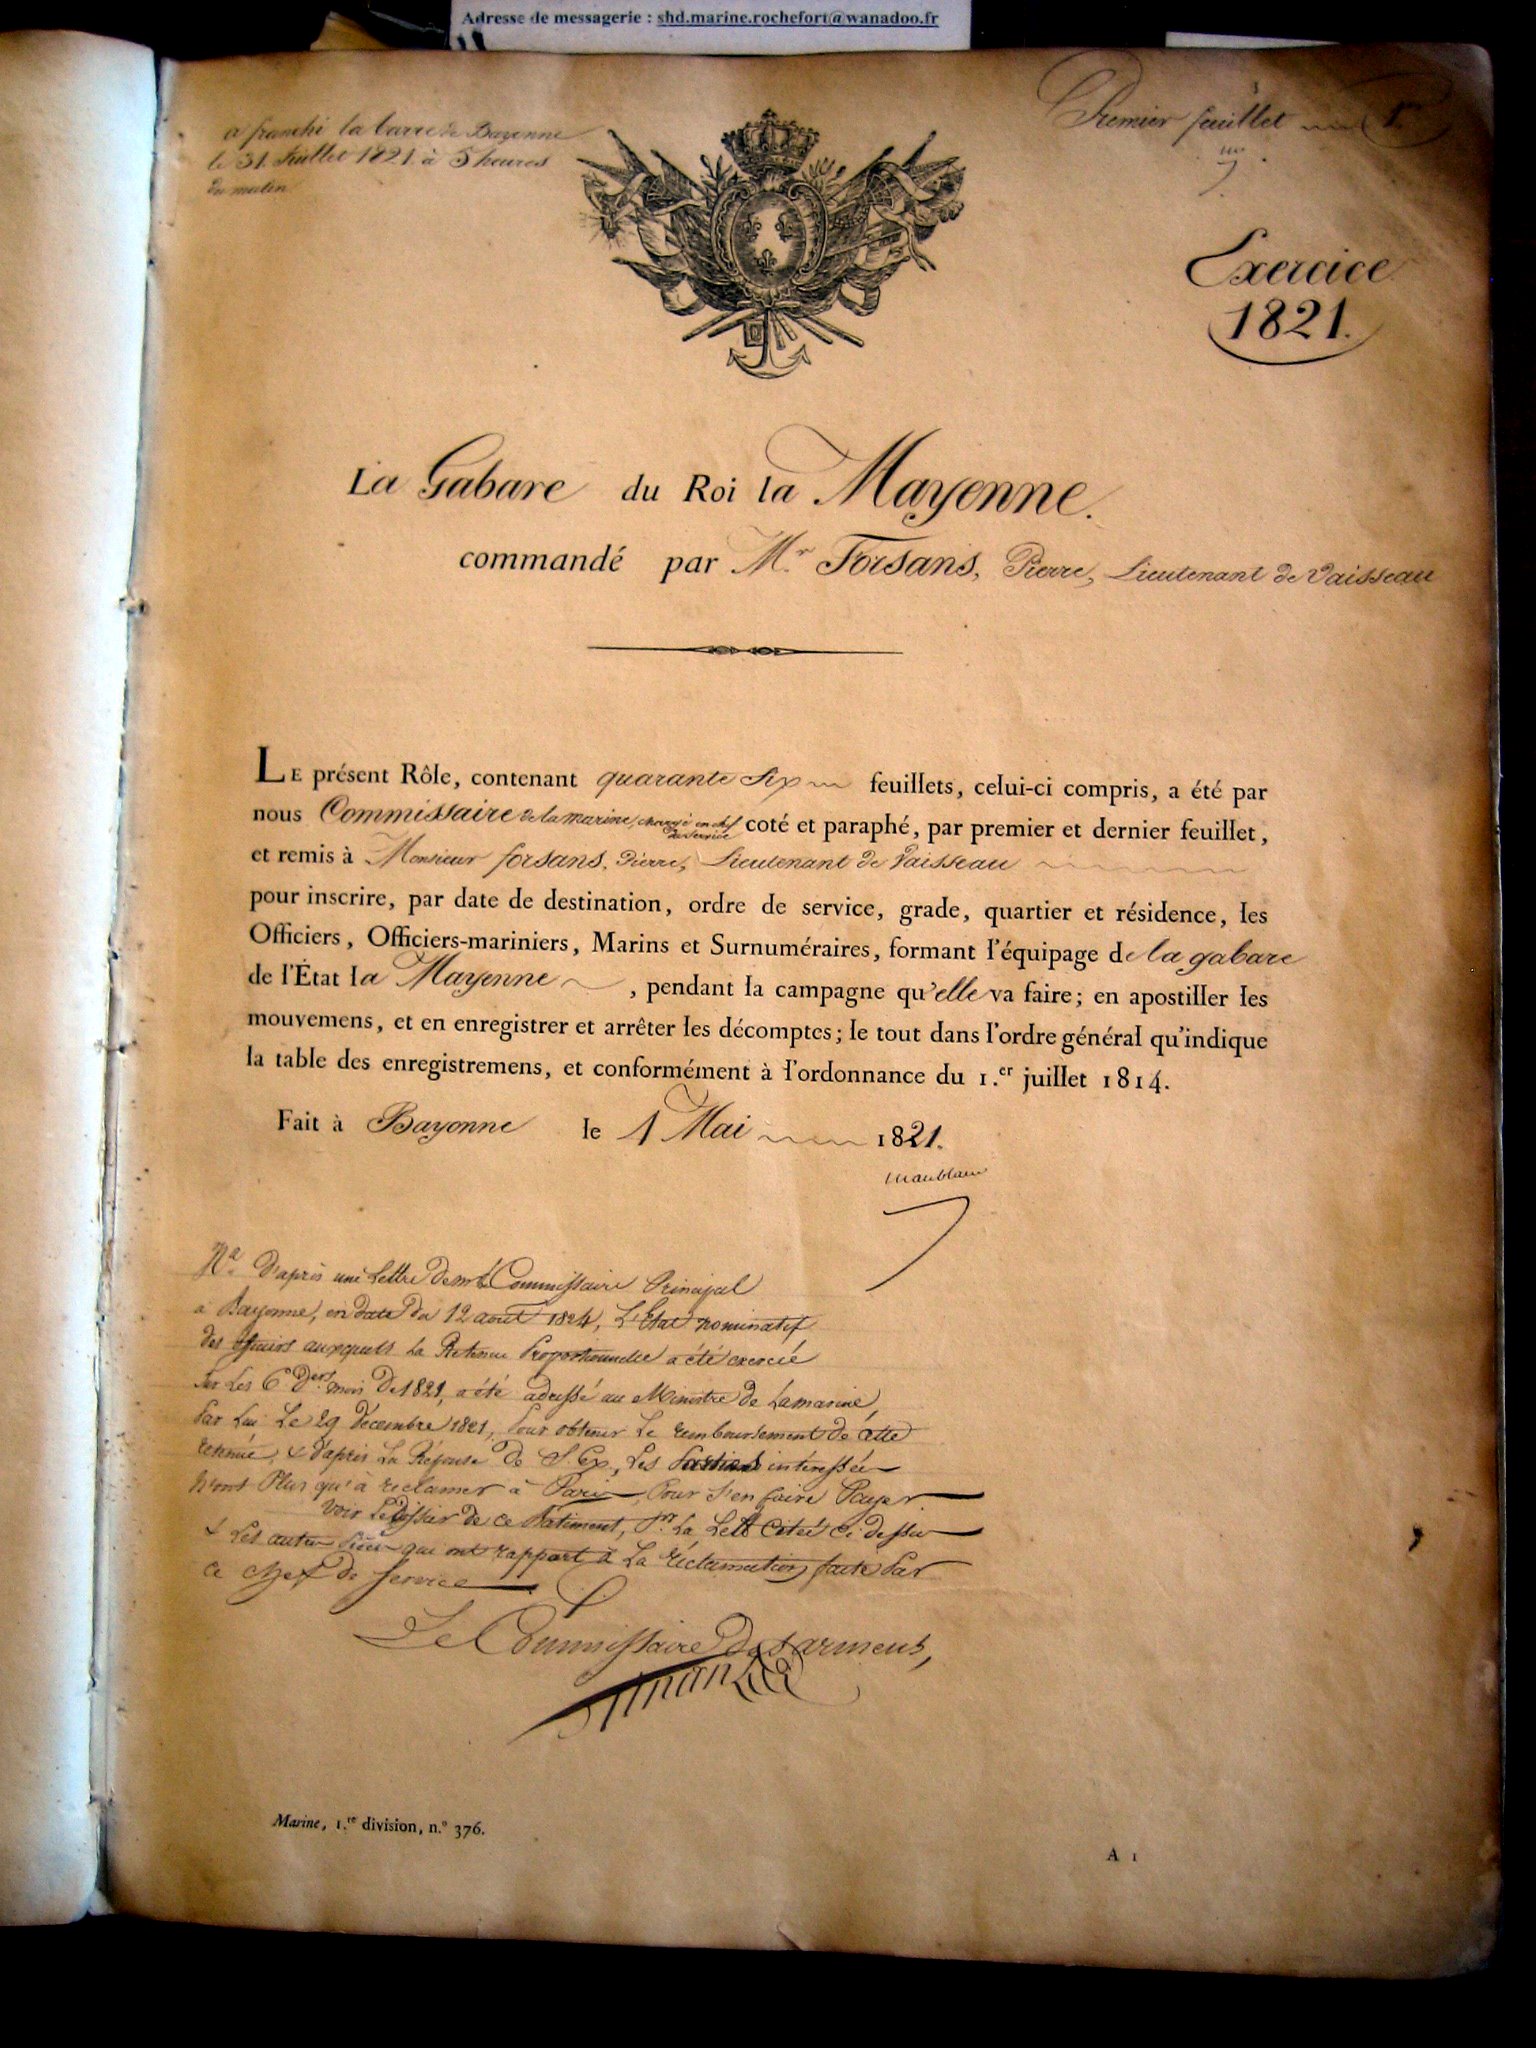 Adresse de messagerie : shd.marine.rochefort@wanadoo.fr
a franchi la barre de Bayonne
le 31 Juillet 1821 à 5 heures
du matin
Premier feuillet 1.er
Exercice
1821.
La Gabare du Roi la Mayenne.
commandé par M.r Forsans, Pierre, Lieutenant de Vaisseau
LE présent Rôle, contenant quarante Six feuillets, celui-ci compris, a été par
nous Commissaire de la marine, chargé en chef du Service coté et paraphé, par premier et dernier feuillet,
et remis à Monsieur forsans, Pierre, Lieutenant de Vaisseau
pour inscrire, par date de destination, ordre de service, grade, quartier et résidence, les
Officiers, Officiers-mariniers, Marins et Surnuméraires, formant l'équipage de la gabare
de l'État la Mayenne, pendant la campagne qu'elle va faire; en apostiller les
mouvemens, et en enregistrer et arrêter les décomptes; le tout dans l'ordre général qu'indique
la table des enregistremens, et conformément à l'ordonnance du 1.er juillet 1814.
Fait à Bayonne le 1 Mai 1821.
N.a D'après une Lettre de Mr le Commissaire Principal
à Bayonne, en date du 12 aout 1824, L'Etat nominatif
des auxquels La Retenue Proportionnelle a été exercée
sur Les 6 Ders mois De 1821, a été adressé au Ministre de La marine,
Par Lui Le 29 Décembre 1821, Pour obtenir Le remboursement de cette
retenue, & d'après La Réponse de S. Ex, Les Parties intéressées
n'ont Plus qu'à réclamer à Paris Pour s'en faire Payer.
Voir Le Dossier de ce Batiment, Pr. La Lettre Citée Ci dessus
& Les autres Pièces qui ont rapport à La réclamation faite Par
ce chef de Service
Le Commissaire des armemts,
Marine, 1.re division, n.° 376.
A 1